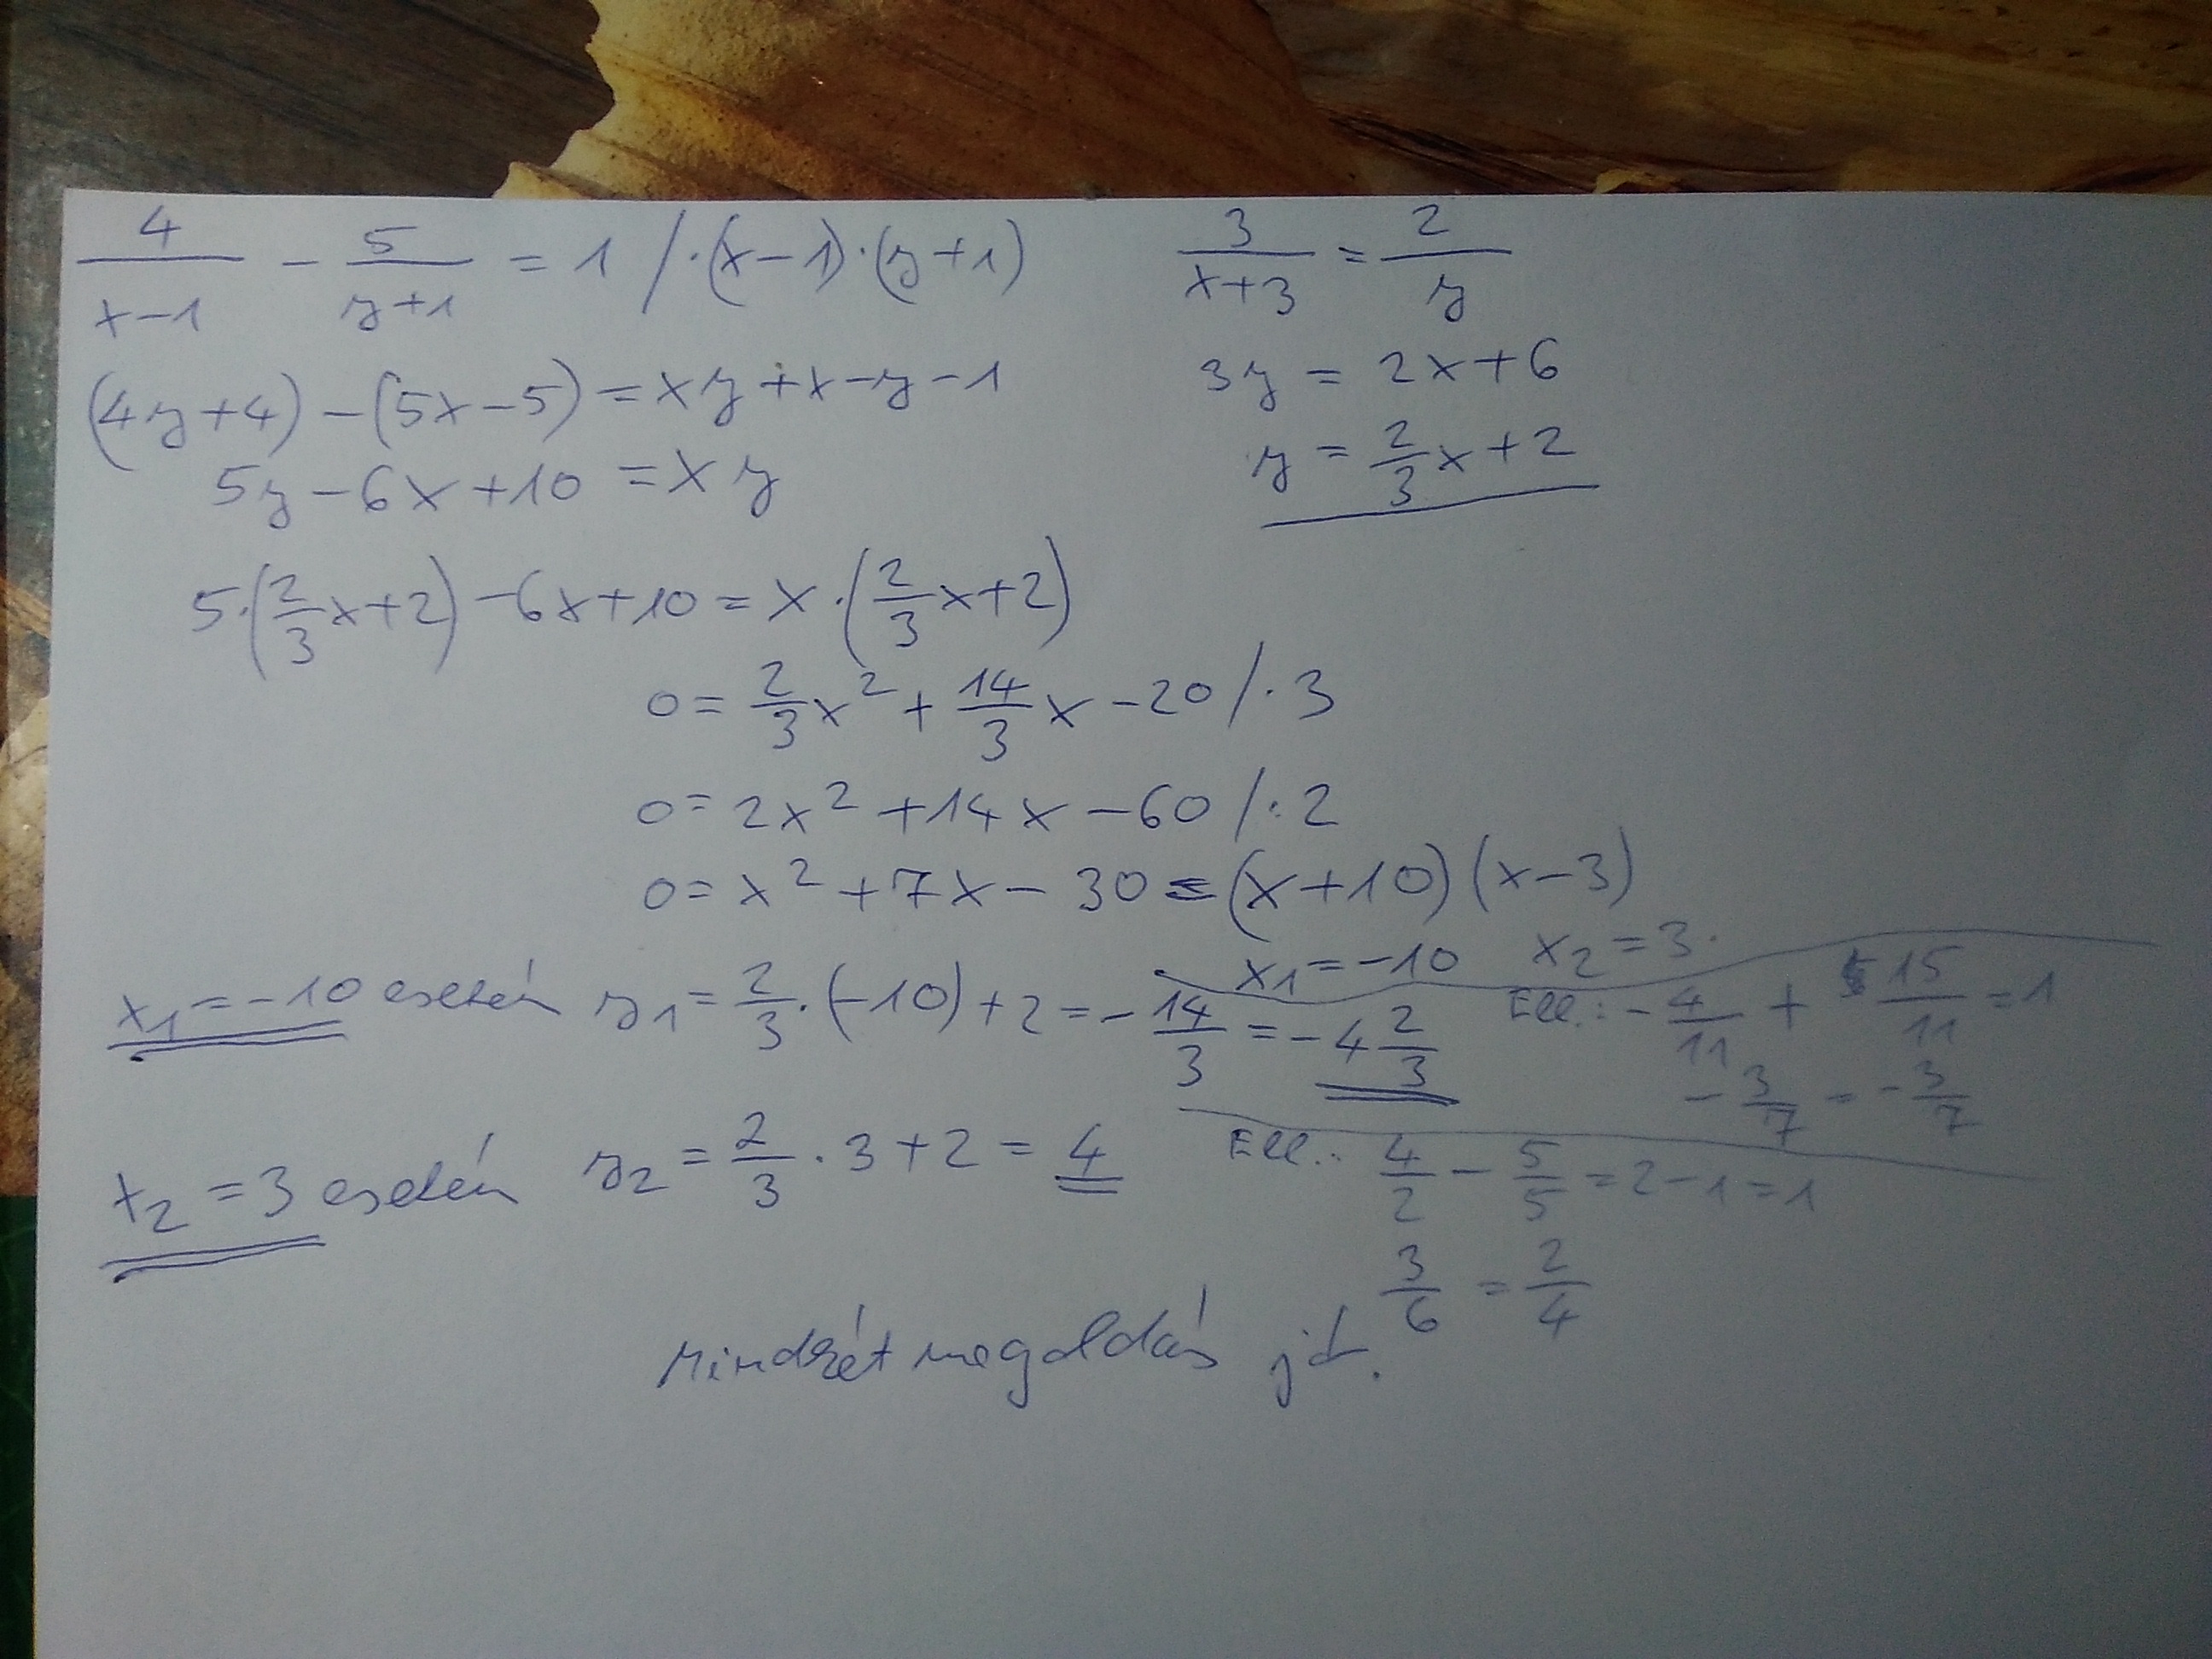 4/(x-1) - 5/(y+1) = 1 /·(x-1)·(y+1)
(4y+4)-(5x-5)=xy+x-y-1
5y-6x+10 =xy
3/(x+3) = 2/y
3y = 2x+6
y = 2/3 x+2
5·(2/3 x+2)-6x+10=x·(2/3 x+2)
0= 2/3 x² + 14/3 x -20 /·3
0= 2x² +14x -60 /:2
0= x² +7x- 30 = (x+10)(x-3)
x₁=-10 x₂=3.
x₁=-10 esetén y₁= 2/3·(-10)+2=- 14/3 =-4 2/3
Ell.: - 4/11 + 15/11 =1
- 3/7 = - 3/7
x₂=3 esetén y₂= 2/3 · 3+2= 4
Ell.: 4/2 - 5/5 =2-1=1
3/6 = 2/4
Mindkét megoldás jó.